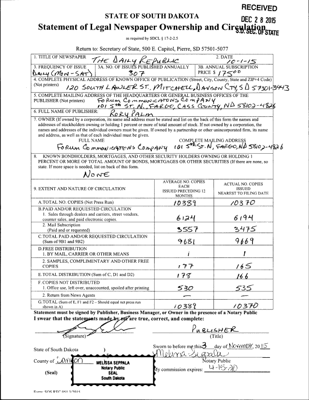 RECEIVED
DEC 28 2015
S.D. SEC. OF STATE
STATE OF SOUTH DAKOTA
Statement of Legal Newspaper Ownership and Circulation
as required by SDCL § 17-2-2.5
Return to: Secretary of State, 500 E. Capitol, Pierre, SD 57501-5077
1. TITLE OF NEWSPAPER THE DAILY REPUBLIC
2. DATE 10-1-15
3. FREQUENCY OF ISSUE DAILY (MON-SAT)
3A. NO. OF ISSUES PUBLISHED ANNUALLY 307
3B. ANNUAL SUBSCRIPTION PRICE $ 175.00
4. COMPLETE PHYSICAL ADDRESS OF KNOWN OFFICE OF PUBLICATION (Street, City, County, State and ZIP+4 Code)
(Not printers) 120 SOUTH LAWLER ST, MITCHELL, DAVISON CTY SD 57301-3443
5. COMPLETE MAILING ADDRESS OF THE HEADQUARTERS OF GENERAL BUSINESS OFFICE OF THE
PUBLISHER (Not printers) FORUM COMMUNICATIONS COMPANY
101 5TH ST. N, FARGO, CASS COUNTY, ND 58102-4826
6. FULL NAME OF PUBLISHER
RORY PALM
7. OWNER (If owned by a corporation, its name and address must be stated and list on the back of this form the names and
addresses of stockholders owning or holding 1 percent or more of total amount of stock. If not owned by a corporation, the
names and addresses of the individual owners must be given. If owned by a partnership or other unincorporated firm, its name
and address, as well as that of each individual must be given.
FULL NAME COMPLETE MAILING ADDRESS
FORUM COMMUNICATIONS COMPANY 101 5TH ST. N, FARGO, ND 58102-4826
8. KNOWN BONDHOLDERS, MORTGAGEES, AND OTHER SECURITY HOLDERS OWNING OR HOLDING 1
PERCENT OR MORE OF TOTAL AMOUNT OF BONDS, MORTGAGES OR OTHER SECURITIES (If there are none, so
state. If more space is needed, list on back of this form.
NONE
9. EXTENT AND NATURE OF CIRCULATION
AVERAGE NO. COPIES EACH ISSUED PRECEDING 12 MONTHS
ACTUAL NO. COPIES ISSUED NEAREST TO FILING DATE
A. TOTAL NO. COPIES (Net Press Run) 10389 10370
B. PAID AND/OR REQUESTED CIRCULATION
1. Sales through dealers and carriers, street vendors, counter sales, and paid electronic copies 6124 6194
2. Mail Subscription (Paid and or requested) 3557 3475
C. TOTAL PAID AND/OR REQUESTED CIRCULATION (Sum of 9B1 and 9B2) 9681 9669
D. FREE DISTRIBUTION
1. BY MAIL, CARRIER OR OTHER MEANS 1 1
2. SAMPLES, COMPLIMENTARY AND OTHER FREE COPIES 177 165
E. TOTAL DISTRIBUTION (Sum of C, D1 and D2) 178 166
F. COPIES NOT DISTRIBUTED
1. Office use, left over, unaccounted, spoiled after printing 530 535
2. Return from News Agents — —
G. TOTAL (Sum of E, F1 and F2 - Should equal net press run shown in A) 10389 10370
Statement must be signed by Publisher, Business Manager, or Owner in the presence of a Notary Public
I swear that the statements made by me are true, correct, and complete:
PUBLISHER
(Signature) (Title)
State of South Dakota
Sworn to before me this 3 day of November, 2015
County of Davison
Melissa Seppala
(Seal)
MELISSA SEPPALA
Notary Public
SEAL
South Dakota
Notary Public
My commission expires